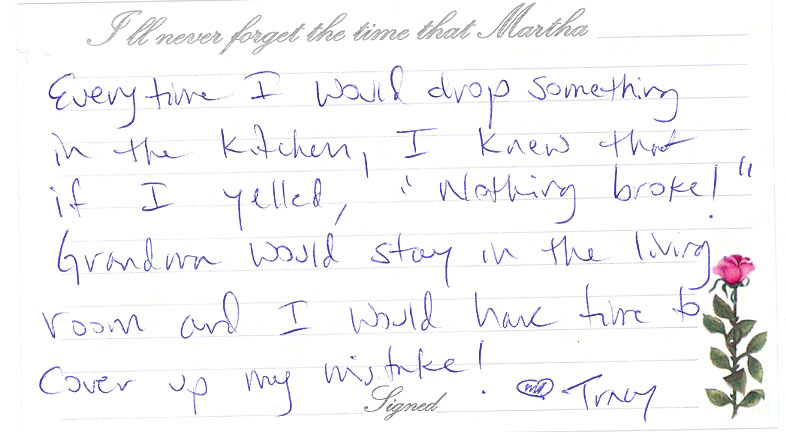 I'll never forget the time that Martha
Everytime I would drop something
in the kitchen, I knew that
if I yelled, "Nothing broke!"
Grandma would stay in the living
room and I would have time to
cover up my mistake!
Signed Tracy